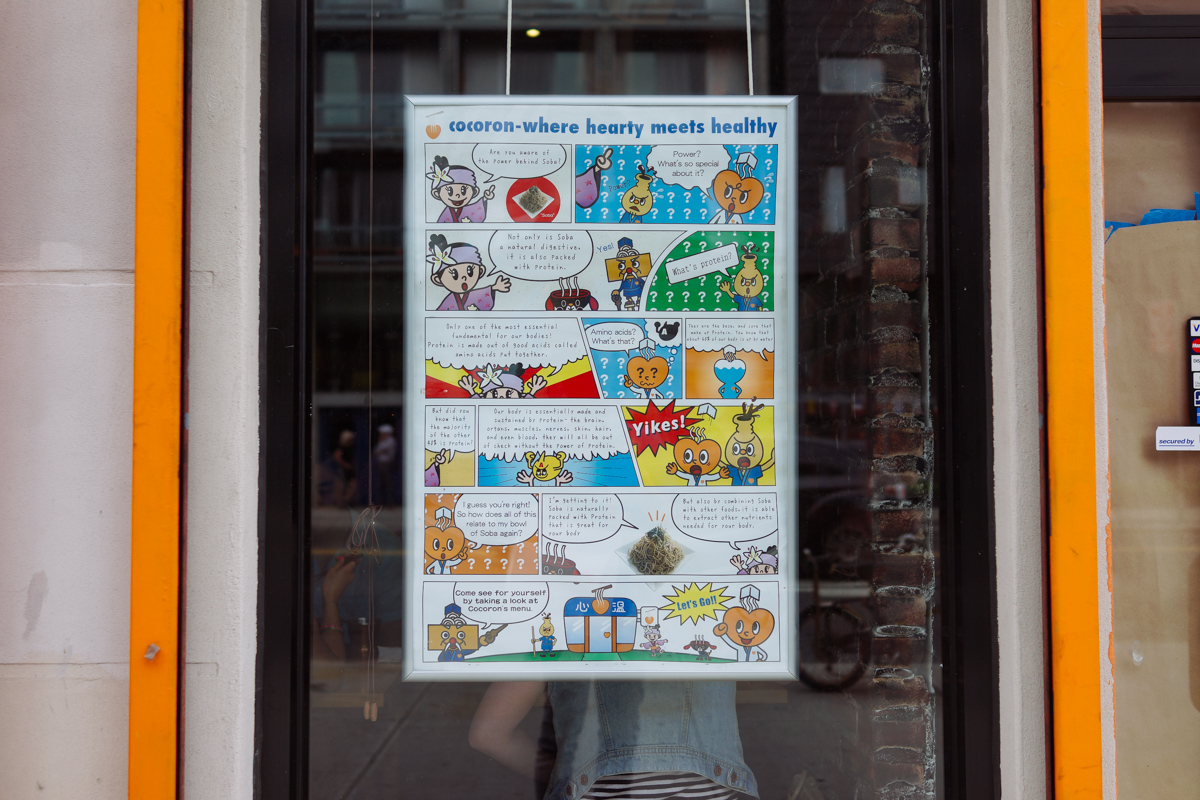 cocoron-where hearty meets healthy
Are you aware of
the power behind Soba?
"Soba"
Power?
What's so special
about it?
Not only is Soba
a natural digestive,
it is also packed
with protein.
Yes!
What's protein?
Only one of the most essential
fundamental for our bodies!
Protein is made out of good acids called
amino acids put together.
Amino acids?
What's that?
A
They are the basic and core that
make up Protein. You know that
about 60% of our body is up to water
But did you
know that
the majority
of the other
40% is protein?
Our body is essentially made and
sustained by Protein- the brain,
organs, muscles, nerves, skin, hair,
and even blood, they will all be out
of check without the power of Protein.
Yikes!
I guess you're right!
So how does all of this
relate to my bowl
of Soba again?
I'm getting to it!
Soba is naturally
packed with Protein
that is great for
your body
But also by combining Soba
with other foods, it is able
to extract other nutrients
needed for your body.
Come see for yourself
by taking a look at
Cocoron's menu.
心 温
Let's Go!!
secured by